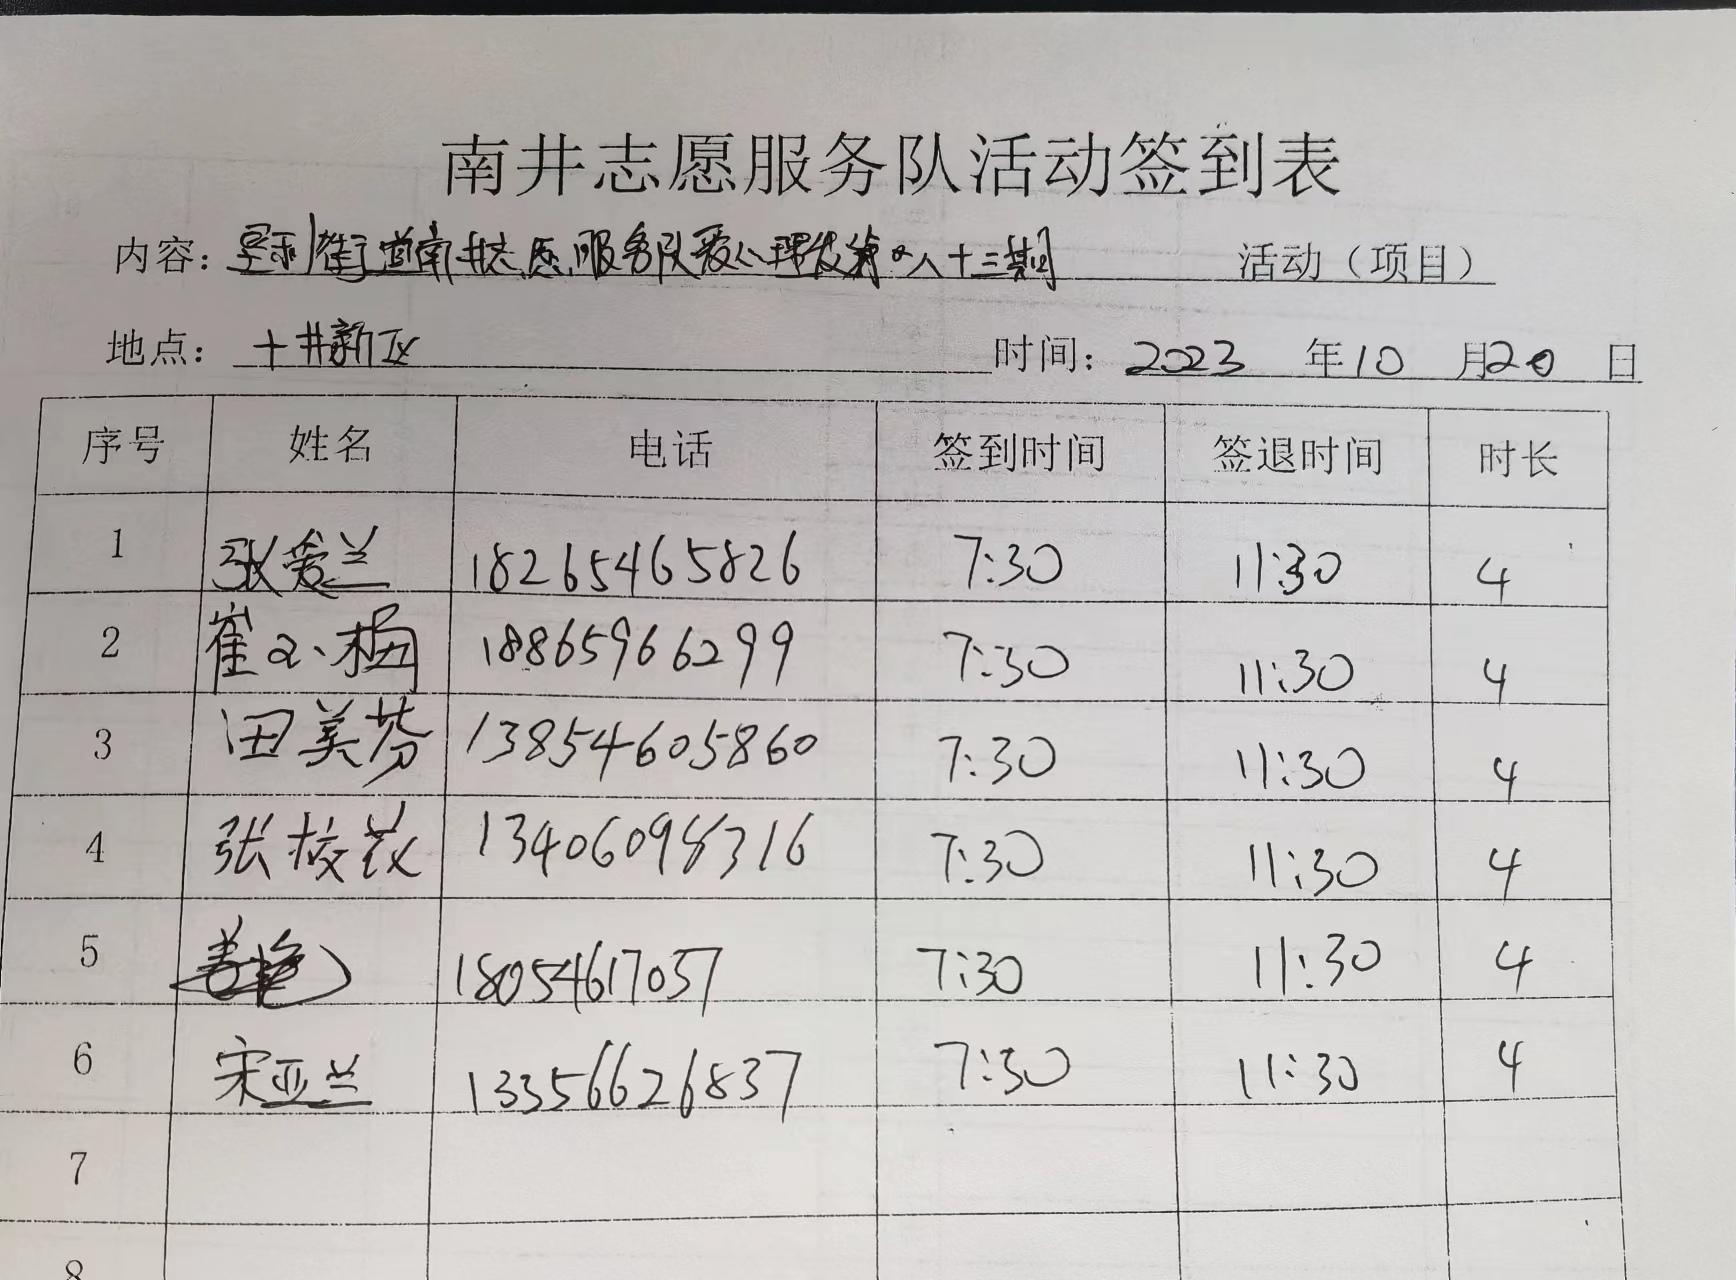 南井志愿服务队活动签到表
内容：垦利街道南井志愿服务队爱心理发第 八十三期 活动（项目）
地点：十井新区 时间：2023 年 10 月 20 日
序号 姓名 电话 签到时间 签退时间 时长
1 张爱兰 18265465826 7:30 11:30 4
2 崔小梅 18865966299 7:30 11:30 4
3 田美芬 13854605860 7:30 11:30 4
4 张 13406098316 7:30 11:30 4
5 姜艳 18054617057 7:30 11:30 4
6 宋亚兰 13356626837 7:30 11:30 4
7
8